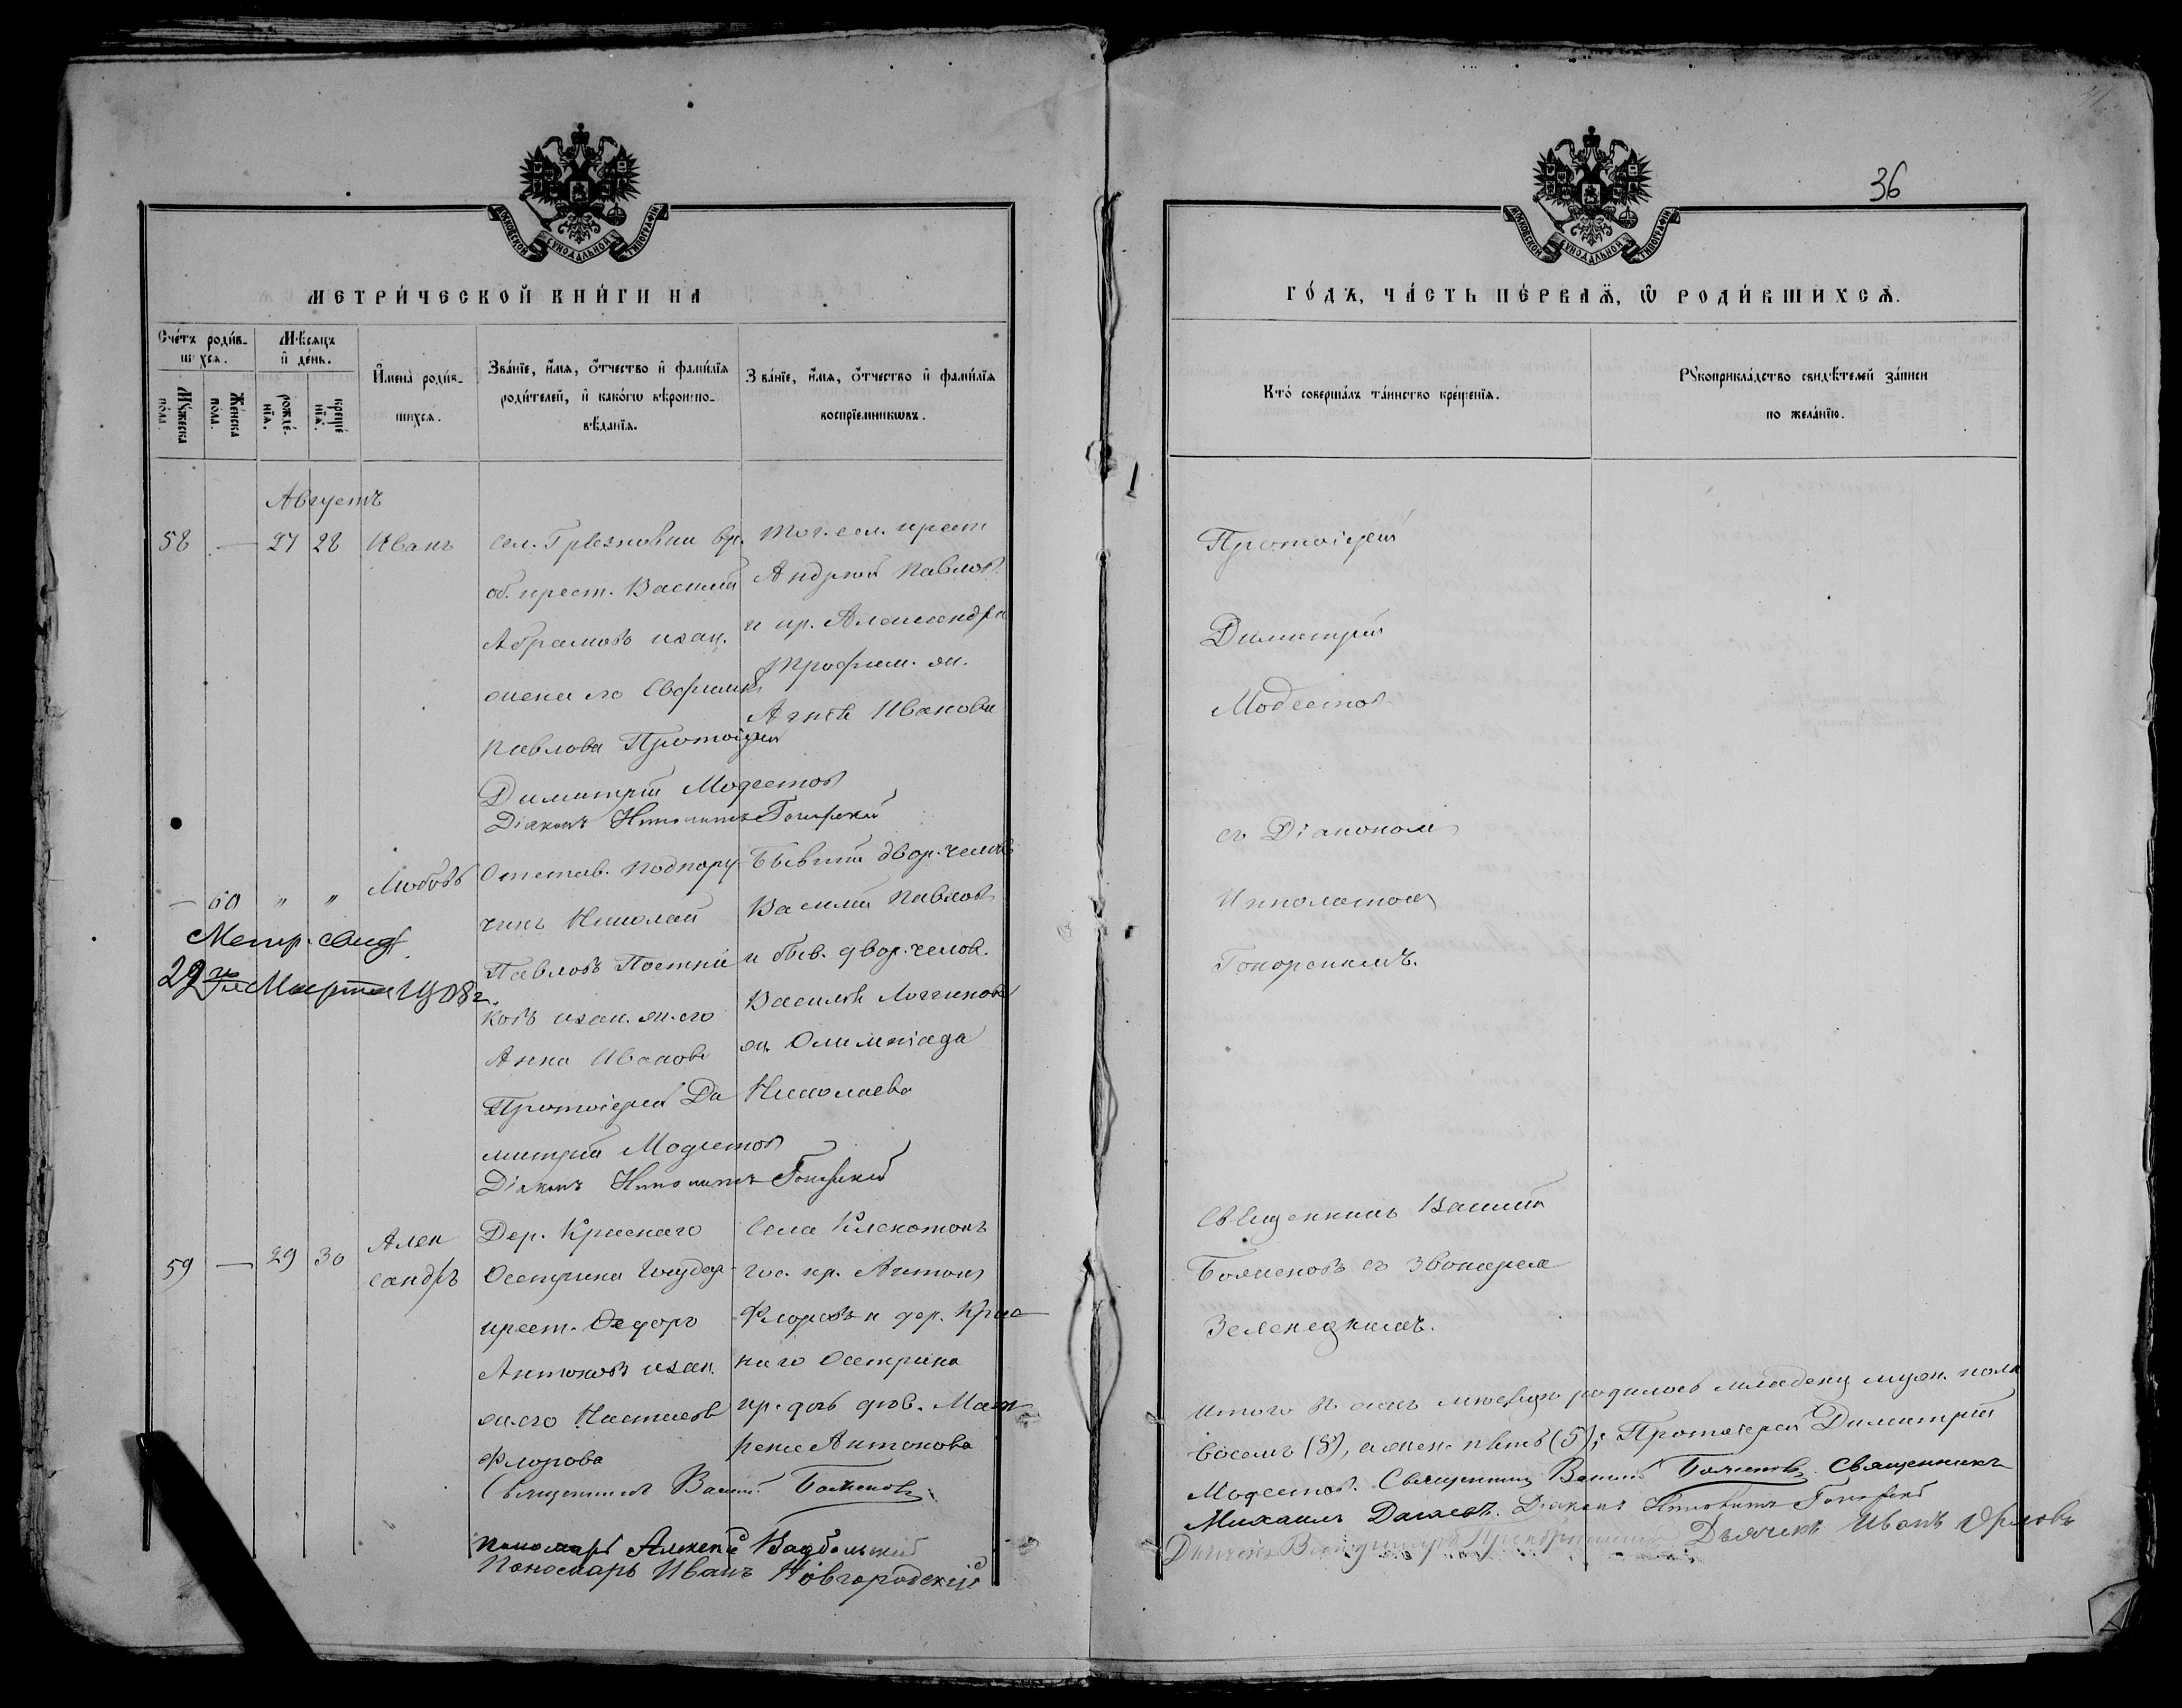 МОСКОВСКОЙ СѴНОДАЛЬНОЙ ТИПОГРАФІИ
МЕТРИ́ЧЕСКОЙ КНИ́ГИ НА
Сче́тъ роди́в-
шихся.
Мѣсяцъ
и҆ де́нь.
Му́жеска
по́ла.
Же́нска
по́ла.
рожде́-
нїя.
креще́
нїя.
И҆мена̀ роди́в-
шихся.
Зва́нїе, и҆́мя, ѻ҆́тчество и҆ фами́лїя
роди́телей, и҆ како́гѡ вѣроиспо-
вѣ́данїя.
Зва́нїе, и҆́мя, ѻ҆́тчество и҆ фами́лїя
воспрїе́мникѡвъ.
Августъ
58 — 27 28 Иванъ
сел. Грязновки вр.
об. крест. Василій
Абрамовъ и зак.
жена его Евфимія
Павлова Протоіерей
Димитрій Модестов
Діаконъ Ипполитъ Гонорскій
Тог. сел. крест
Андрей Павлов.
и кр. Александра
Трофим. ж.
Агнія Иванова
— 60 " " Любовь
Метр. свид.
29го Марта 1908 г.
Отстав. Подпору-
чикъ Николай
Павловъ Постни
ковъ и зак. ж. его
Анна Иванова
Протоіерей Ди
митрій Модестов
Діаконъ Ипполитъ Гонорскій
Бывшій двор. челов
Василій Павлов
и быв. двор. челов.
Василія Логгинова
ж. Олимпіада
Николаева
59 — 29 30 Алек
сандръ
Дер. Краснаго
Осетрика Государ
крест. Ѳедоръ
Антоновъ и зак.
ж. его Настасья
Флорова
Священникъ Васил. Боженовъ
Пономарь Алексѣй Вадбольскій
Пономарь Иванъ Новгородскій
Села Клекотокъ
гос. кр. Антонъ
Флоровъ и дер. Крас
наго Осетрика
кр. дочь дѣв. Мат
рена Антонова
36
МОСКОВСКОЙ СѴНОДАЛЬНОЙ ТИПОГРАФІИ
ГО́ДЪ, ЧА́СТЬ ПЕ́РВАЯ, Ѡ҆ РОДИ́ВШИХСЯ.
Кто̀ соверша́лъ та́инство креще́нїя.
Рꙋкоприкла́дство свидѣ́телей за́писи
по жела́нїю.
Протоіерей
Димитрій
Модестов
съ Діакономъ
Ипполитомъ
Гонорскимъ.
Священникъ Василій
Боженовъ съ Звонарем
Зеленецкимъ.
Итого въ семъ мѣсяцѣ родилось младенц. муж. пола
восемь (8), а жен. пять (5); Протоіерей Димитрій
Модестов. Священникъ Василій Боженовъ. Священникъ
Михаилъ Діаконъ Ипполитъ Гонорскій
Дьячекъ Дьячекъ Иванъ Орловъ